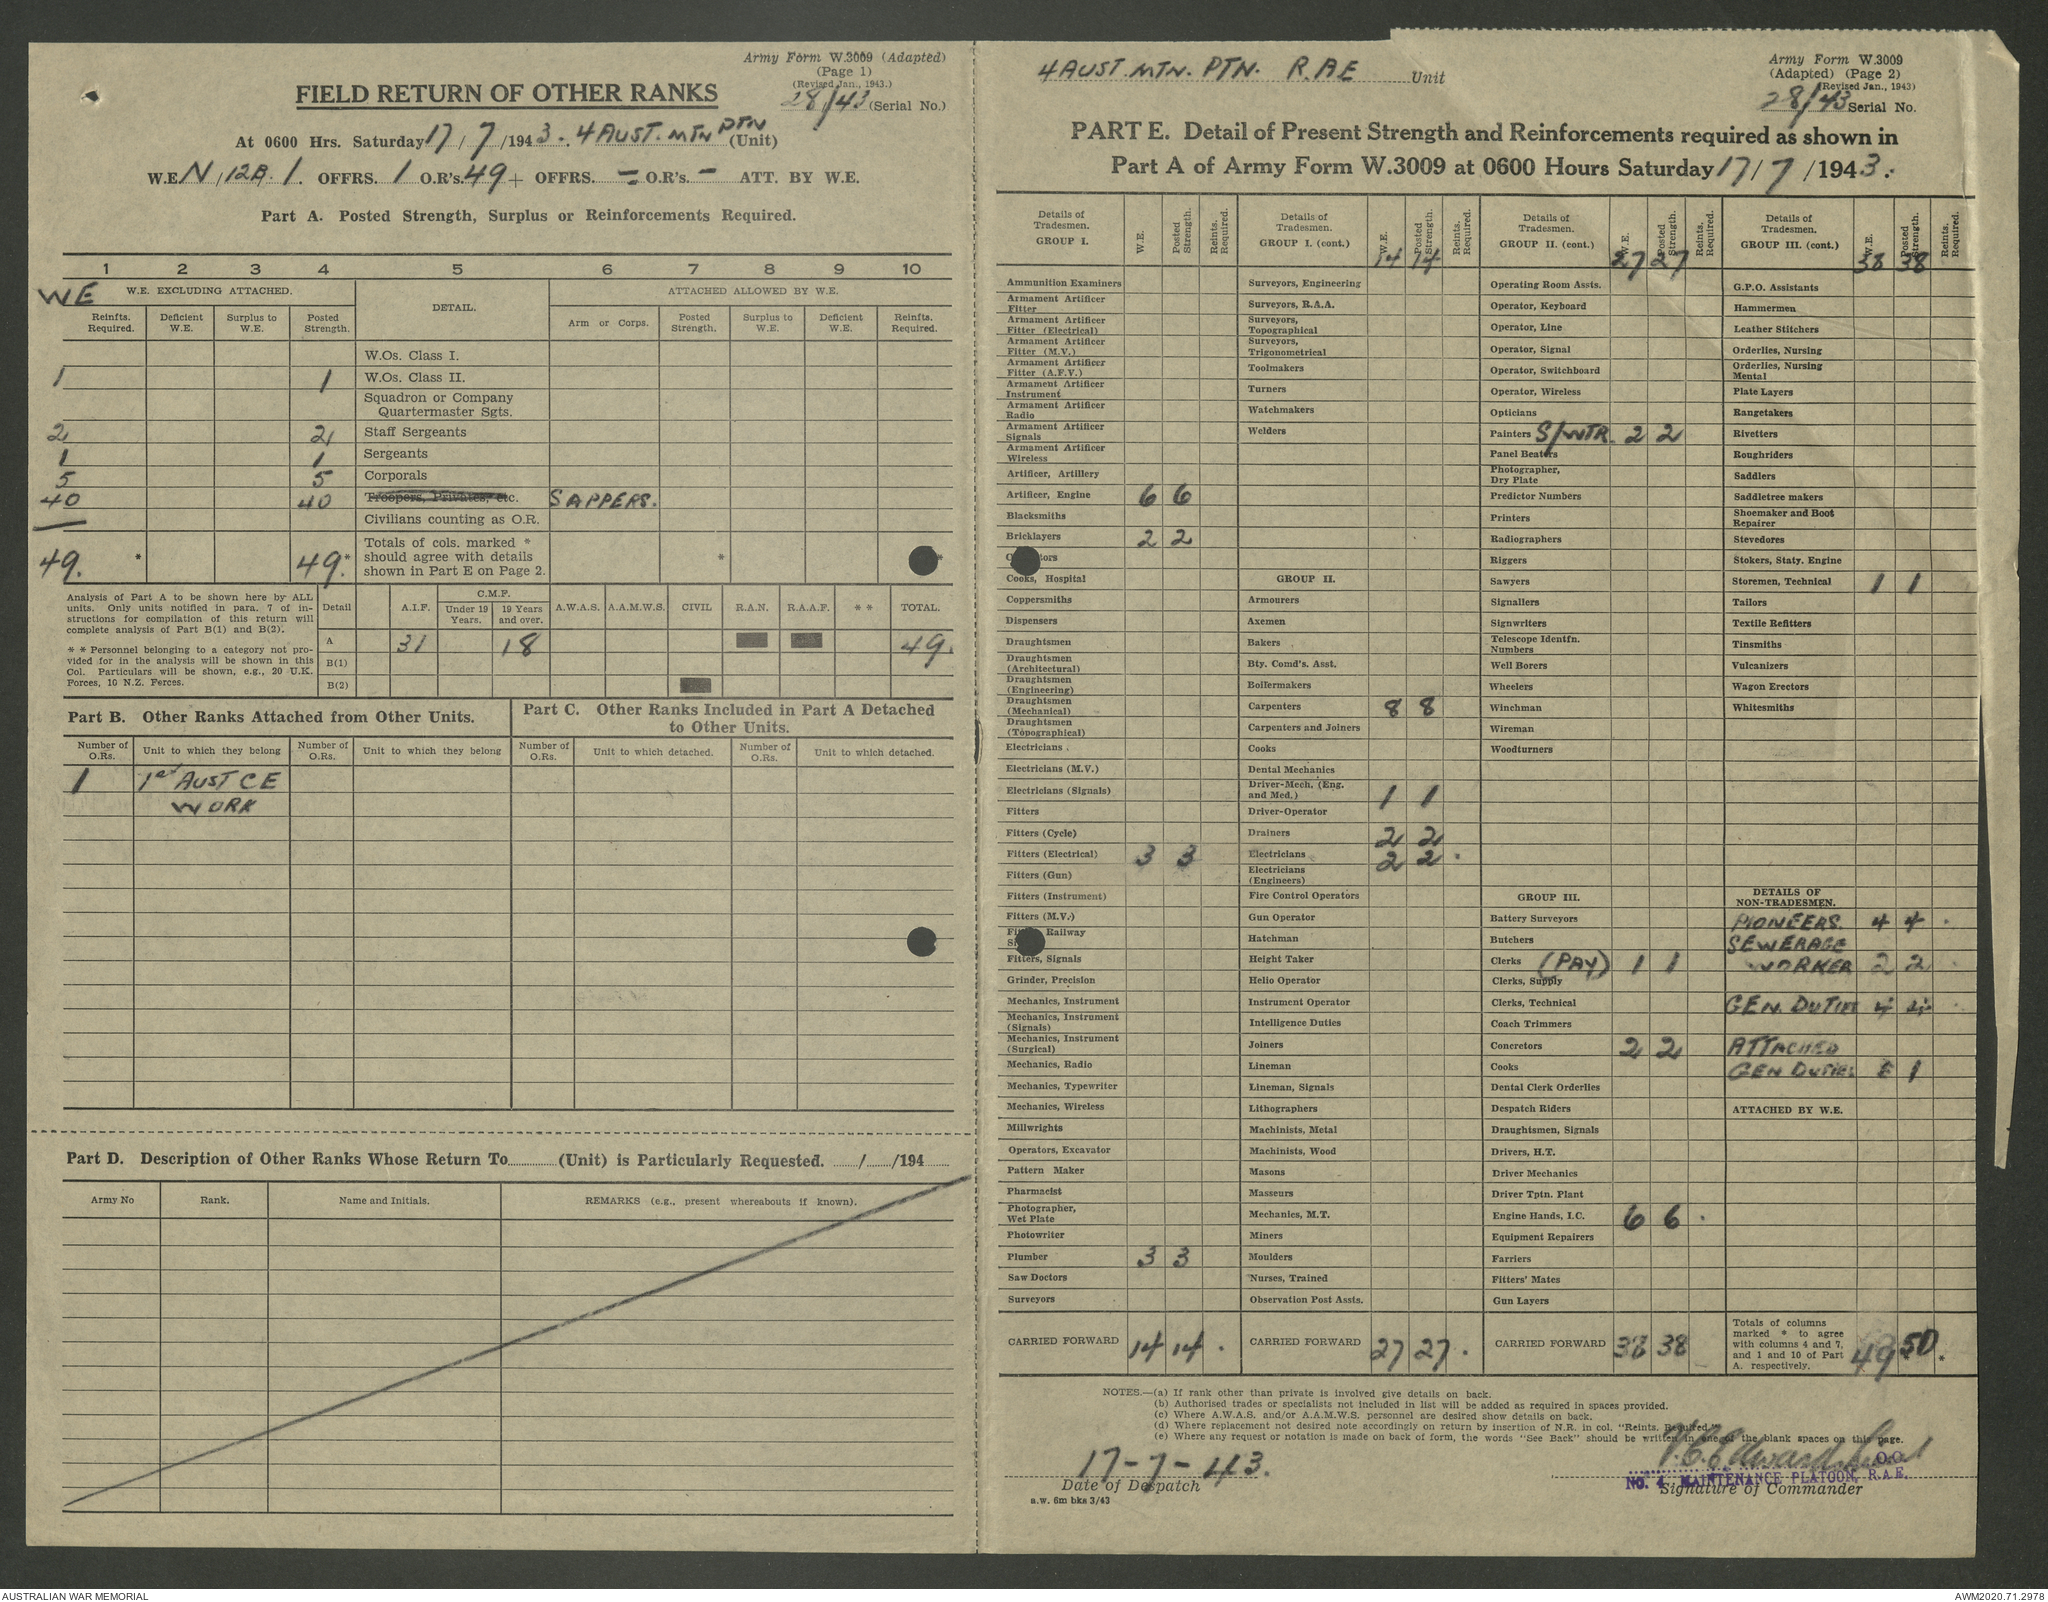 Army Form W.3009 (Adapted)
(Page 1)
(Revised Jan., 1943.)
28/43 (Serial No.)
FIELD RETURN OF OTHER RANKS
At 0600 Hrs. Saturday 17/7/1943. 4 AUST. MTN PTN (Unit)
W.E. N/12B/1. OFFRS. 1 O.R's. 49 + OFFRS. – O.R's. – ATT. BY W.E.
Part A. Posted Strength, Surplus or Reinforcements Required.
1 2 3 4 5 6 7 8 9 10
WE
W.E. EXCLUDING ATTACHED. DETAIL. ATTACHED ALLOWED BY W.E.
Reinfts. Required. Deficient W.E. Surplus to W.E. Posted Strength. Arm or Corps. Posted Strength. Surplus to W.E. Deficient W.E. Reinfts. Required.
W.Os. Class I.
1 1 W.Os. Class II.
Squadron or Company
Quartermaster Sgts.
2 2 Staff Sergeants
1 1 Sergeants
5 5 Corporals
40 40 Troopers, Privates, etc. SAPPERS.
Civilians counting as O.R.
49. * 49.* Totals of cols. marked * should agree with details shown in Part E on Page 2. * *
Analysis of Part A to be shown here by ALL
units. Only units notified in para. 7 of in-
structions for compilation of this return will
complete analysis of Part B(1) and B(2).
* * Personnel belonging to a category not pro-
vided for in the analysis will be shown in this
Col. Particulars will be shown, e.g., 20 U.K.
Forces, 10 N.Z. Forces.
Detail A.I.F. C.M.F. Under 19 Years. 19 Years and over. A.W.A.S. A.A.M.W.S. CIVIL R.A.N. R.A.A.F. * * TOTAL.
A 31 18 49.
B(1)
B(2)
Part B. Other Ranks Attached from Other Units.
Part C. Other Ranks Included in Part A Detached
to Other Units.
Number of O.Rs. Unit to which they belong Number of O.Rs. Unit to which they belong Number of O.Rs. Unit to which detached. Number of O.Rs. Unit to which detached.
1 1st AUST C E
WORK
Part D. Description of Other Ranks Whose Return To............(Unit) is Particularly Requested. ....../....../194......
Army No Rank. Name and Initials. REMARKS (e.g., present whereabouts if known).
4 AUST. MTN. PTN. R.A E Unit
Army Form W.3009
(Adapted) (Page 2)
(Revised Jan., 1943)
28/43 Serial No.
PART E. Detail of Present Strength and Reinforcements required as shown in
Part A of Army Form W.3009 at 0600 Hours Saturday 17/7/1943.
Details of Tradesmen. GROUP I. W.E. Posted Strength. Reints. Required.
Ammunition Examiners
Armament Artificer Fitter
Armament Artificer Fitter (Electrical)
Armament Artificer Fitter (M.V.)
Armament Artificer Fitter (A.F.V.)
Armament Artificer Instrument
Armament Artificer Radio
Armament Artificer Signals
Armament Artificer Wireless
Artificer, Artillery
Artificer, Engine 6 6
Blacksmiths
Bricklayers 2 2
Cooks, Hospital
Coppersmiths
Dispensers
Draughtsmen
Draughtsmen (Architectural)
Draughtsmen (Engineering)
Draughtsmen (Mechanical)
Draughtsmen (Topographical)
Electricians
Electricians (M.V.)
Electricians (Signals)
Fitters
Fitters (Cycle)
Fitters (Electrical) 3 3
Fitters (Gun)
Fitters (Instrument)
Fitters (M.V.)
Railway
Fitters, Signals
Grinder, Precision
Mechanics, Instrument
Mechanics, Instrument (Signals)
Mechanics, Instrument (Surgical)
Mechanics, Radio
Mechanics, Typewriter
Mechanics, Wireless
Millwrights
Operators, Excavator
Pattern Maker
Pharmacist
Photographer, Wet Plate
Photowriter
Plumber 3 3
Saw Doctors
Surveyors
CARRIED FORWARD 14 14
Details of Tradesmen. GROUP I. (cont.) W.E. Posted Strength. Reints. Required.
14 14
Surveyors, Engineering
Surveyors, R.A.A.
Surveyors, Topographical
Surveyors, Trigonometrical
Toolmakers
Turners
Watchmakers
Welders
GROUP II.
Armourers
Axemen
Bakers
Bty. Comd's. Asst.
Boilermakers
Carpenters 8 8
Carpenters and Joiners
Cooks
Dental Mechanics
Driver-Mech. (Eng. and Med.) 1 1
Driver-Operator
Drainers 2 2
Electricians 2 2
Electricians (Engineers)
Fire Control Operators
Gun Operator
Hatchman
Height Taker
Helio Operator
Instrument Operator
Intelligence Duties
Joiners
Lineman
Lineman, Signals
Lithographers
Machinists, Metal
Machinists, Wood
Masons
Masseurs
Mechanics, M.T.
Miners
Moulders
Nurses, Trained
Observation Post Assts.
CARRIED FORWARD 27 27
Details of Tradesmen. GROUP II. (cont.) W.E. Posted Strength. Reints. Required.
27 27
Operating Room Assts.
Operator, Keyboard
Operator, Line
Operator, Signal
Operator, Switchboard
Operator, Wireless
Opticians
Painters S/WTR. 2 2
Panel Beaters
Photographer, Dry Plate
Predictor Numbers
Printers
Radiographers
Riggers
Sawyers
Signallers
Signwriters
Telescope Identfn. Numbers
Well Borers
Wheelers
Winchman
Wireman
Woodturners
GROUP III.
Battery Surveyors
Butchers
Clerks (PAY) 1 1
Clerks, Supply
Clerks, Technical
Coach Trimmers
Concretors 2 2
Cooks
Dental Clerk Orderlies
Despatch Riders
Draughtsmen, Signals
Drivers, H.T.
Driver Mechanics
Driver Tptn. Plant
Engine Hands, I.C. 6 6
Equipment Repairers
Farriers
Fitters' Mates
Gun Layers
CARRIED FORWARD 38 38
Details of Tradesmen. GROUP III. (cont.) W.E. Posted Strength. Reints. Required.
38 38
G.P.O. Assistants
Hammermen
Leather Stitchers
Orderlies, Nursing
Orderlies, Nursing Mental
Plate Layers
Rangetakers
Rivetters
Roughriders
Saddlers
Saddletree makers
Shoemaker and Boot Repairer
Stevedores
Stokers, Staty. Engine
Storemen, Technical 1 1
Tailors
Textile Refitters
Tinsmiths
Vulcanizers
Wagon Erectors
Whitesmiths
DETAILS OF NON-TRADESMEN.
PIONEERS. 4 4
SEWERAGE
WORKER 2 2
GEN. DUTIES 4 4
ATTACHED
GEN DUTIES 1
ATTACHED BY W.E.
Totals of columns marked * to agree with columns 4 and 7, and 1 and 10 of Part A. respectively. 49 50 *
NOTES.—(a) If rank other than private is involved give details on back.
(b) Authorised trades or specialists not included in list will be added as required in spaces provided.
(c) Where A.W.A.S. and/or A.A.M.W.S. personnel are desired show details on back.
(d) Where replacement not desired note accordingly on return by insertion of N.R. in col. "Reints. Required."
(e) Where any request or notation is made on back of form, the words "See Back" should be written in one of the blank spaces on this page.
17-7-43.
Date of Despatch
a.w. 6m bks 3/43
O.C.
NO. 4 MAINTENANCE PLATOON, R.A.E.
Signature of Commander
AUSTRALIAN WAR MEMORIAL
AWM2020.71.2978